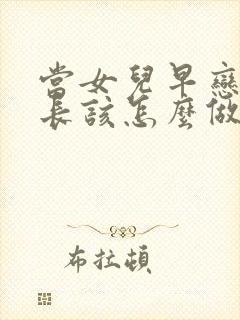 當女兒早戀
長該怎麼做
布拉頓